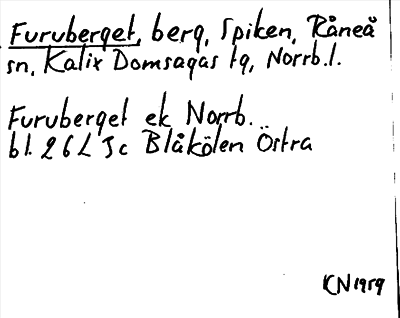 Furuberget, berg, Spiken, Råneå
sn, Kalix Domsagas tg, Norrb.l.
Furuberget ek Norrb.
bl. 26L Jc Blåkölen Östra
KN 1959